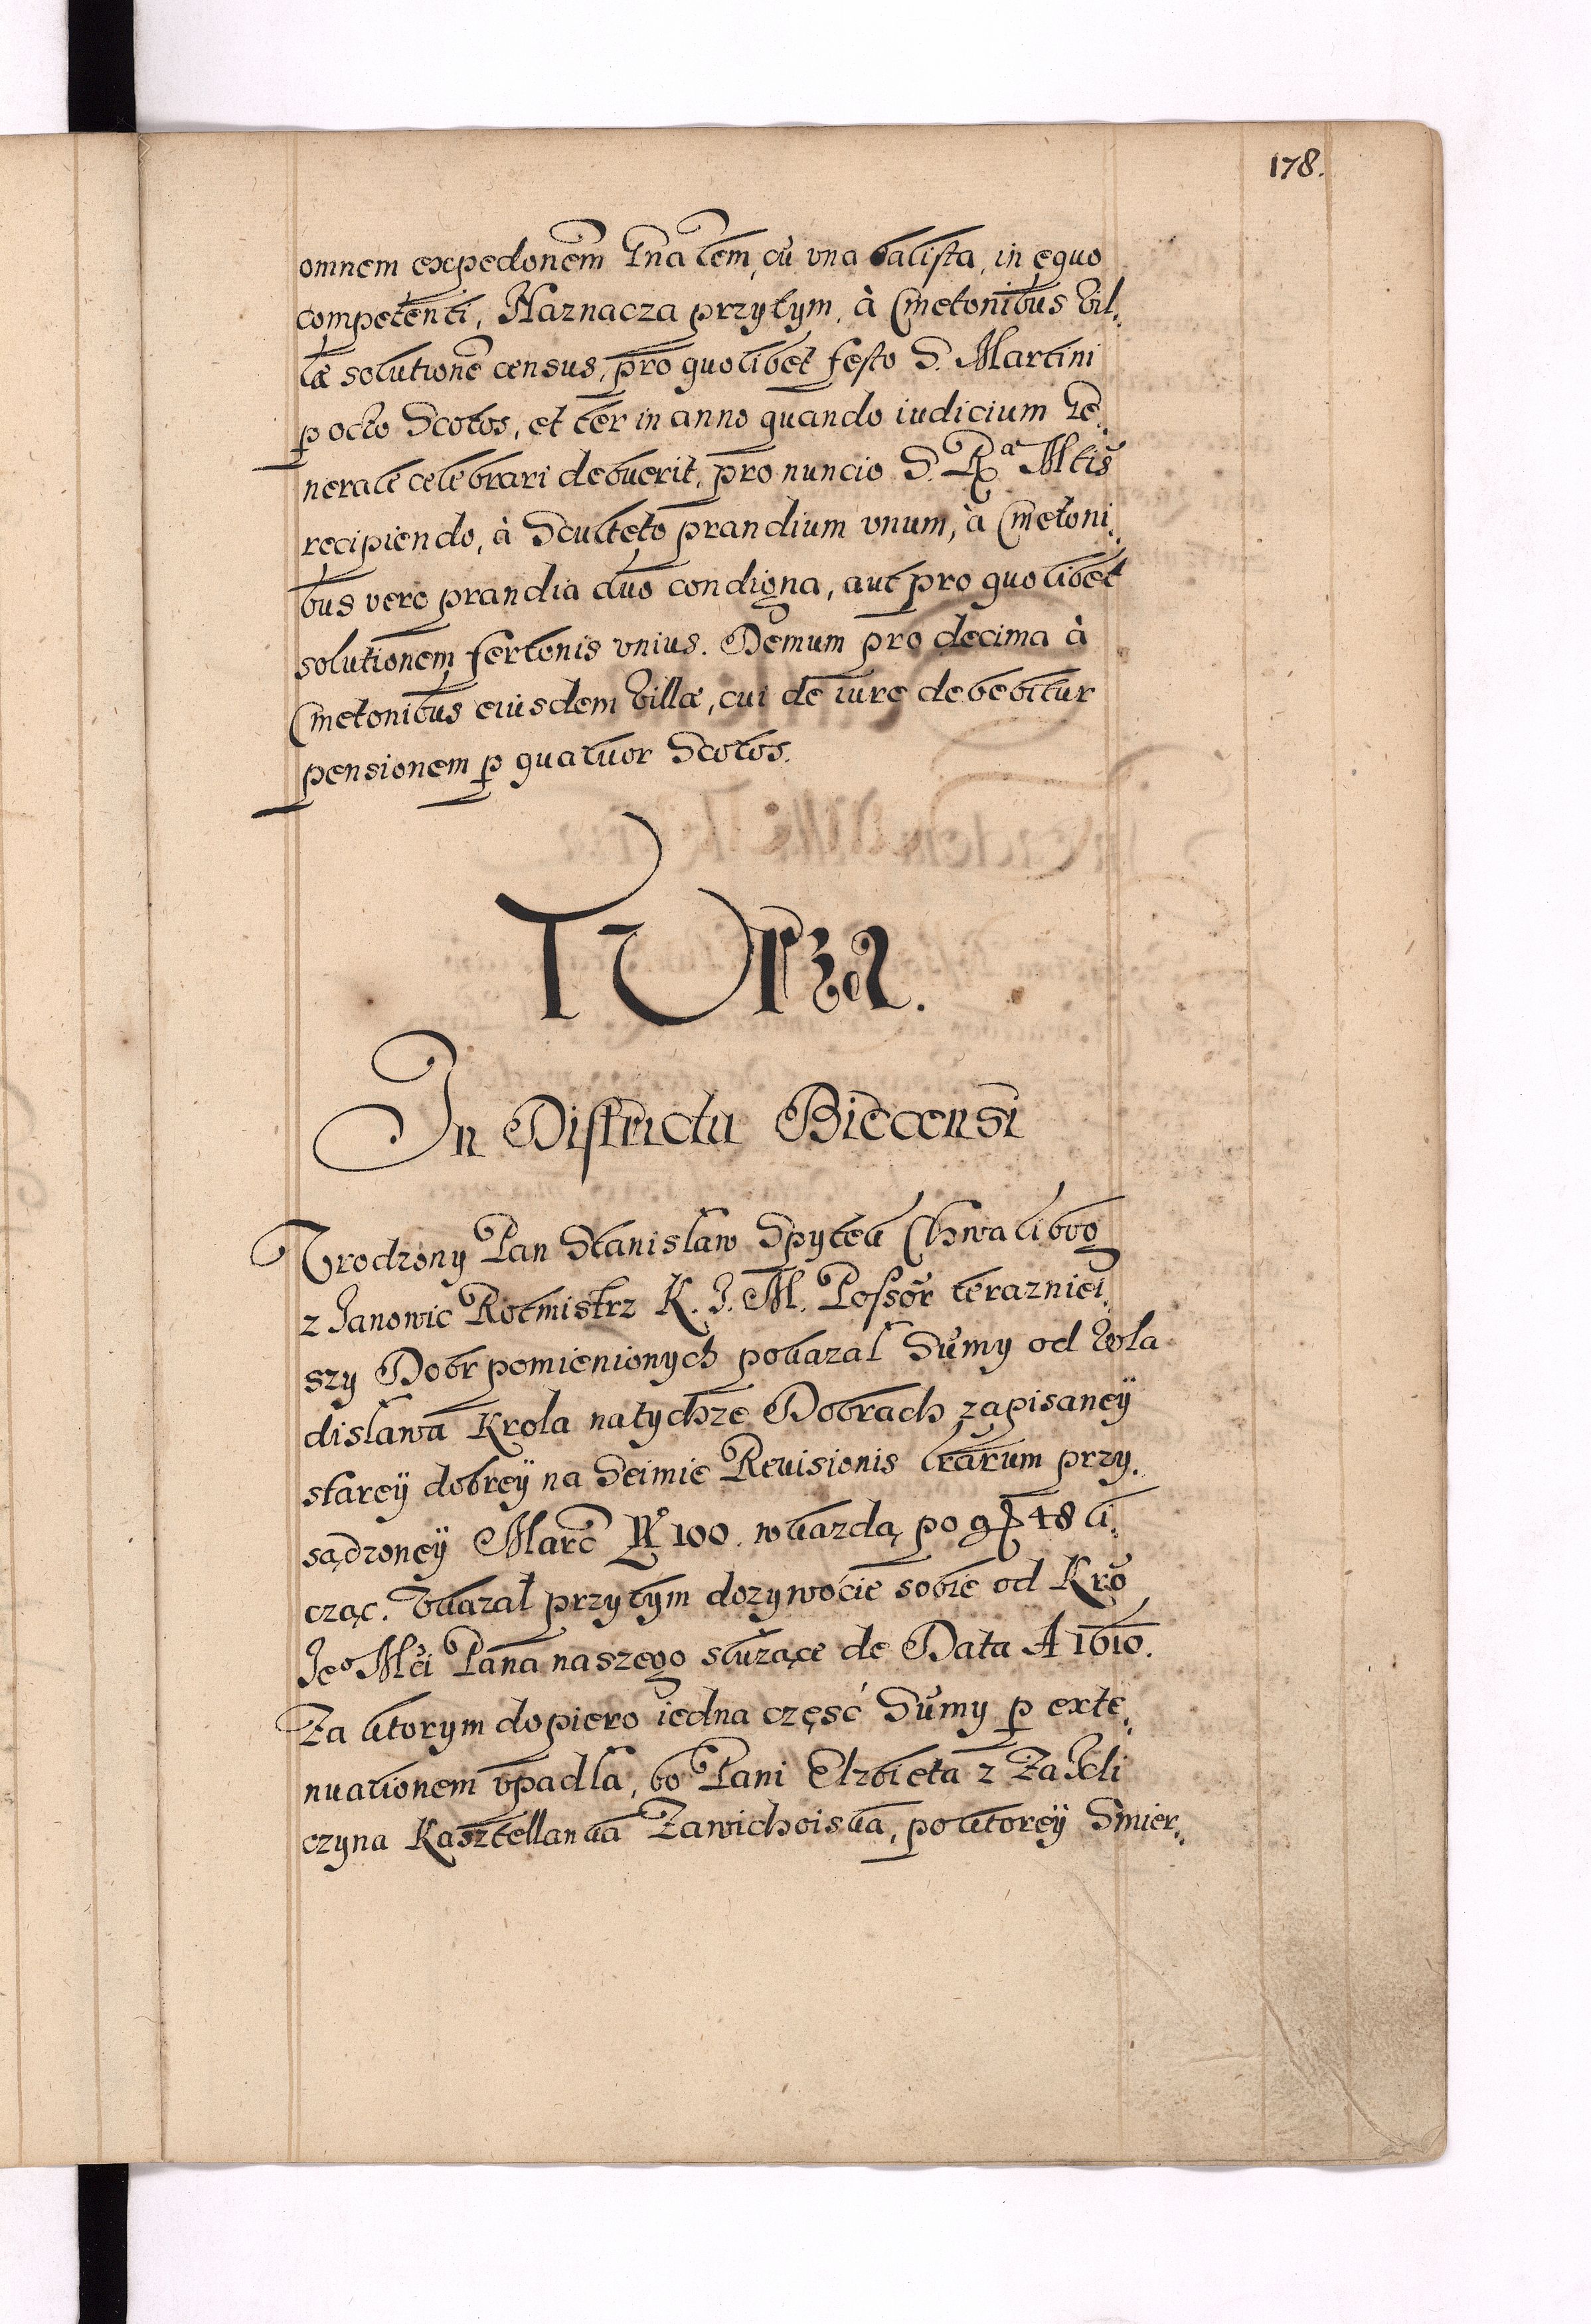 178.
omnem expedonem Gnalem, cu vna balista, in equo
competenti, Naznacza przytym, à Cmetonibus Vil,
læ solutione census, pro quolibet festo S. Martini
p octo Scotos, et ter in anno quando iudicium Ge,
nerale celebrari debuerit, pro nuncio S. Rᵃ Mtis
recipiendo, à Sculteto prandium vnum, à Cmetoni,
bus vero prandia duo condigna, aut pro quolibet
solutionem fertonis vnius. Demum pro decima à
Cmetonibus eiusdem Villæ, cui de iure debebitur
pensionem p quatuor Scotos.
Turza.
In Districtu Biecensi
Vrodzony Pan Stanislaw Spytek Chwalibog
z Janowic Rotmistrz K. J. M. Possor terazniei,
szy Dobr pomienionych pokazal Sumy od Wla
dislawa Krola natychze Dobrach zapisaneÿ
stareÿ dobreÿ na Seimie Reuisionis lrarum przy,
sądzoneÿ Marc 100. wkazdą po g 48 li,
cząc. Vkazał przytym dozywocie sobie od Kro
Jeᵒ Mci Pana naszego sluzące de Data A 1610.
Za ktorym dopiero iedna część Sumy p exte,
nuationem vpadla, bo Pani Elzbieta z Zakli
czyna Kasztellanka Zawichoiska, po ktoreÿ Smier,